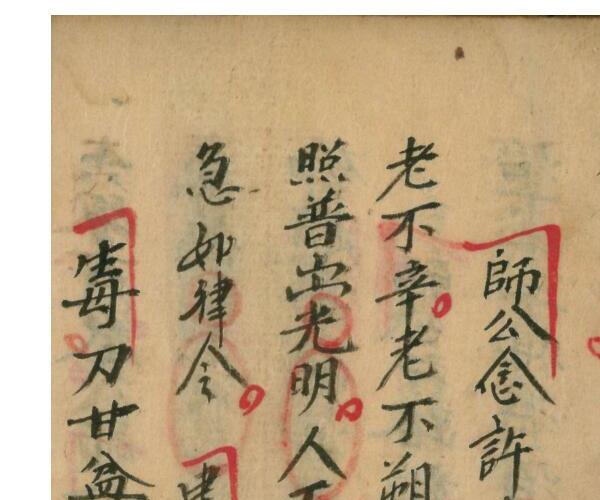 師公念許
老不辛老不朔
照普出光明人
急如律令
毒刀甘